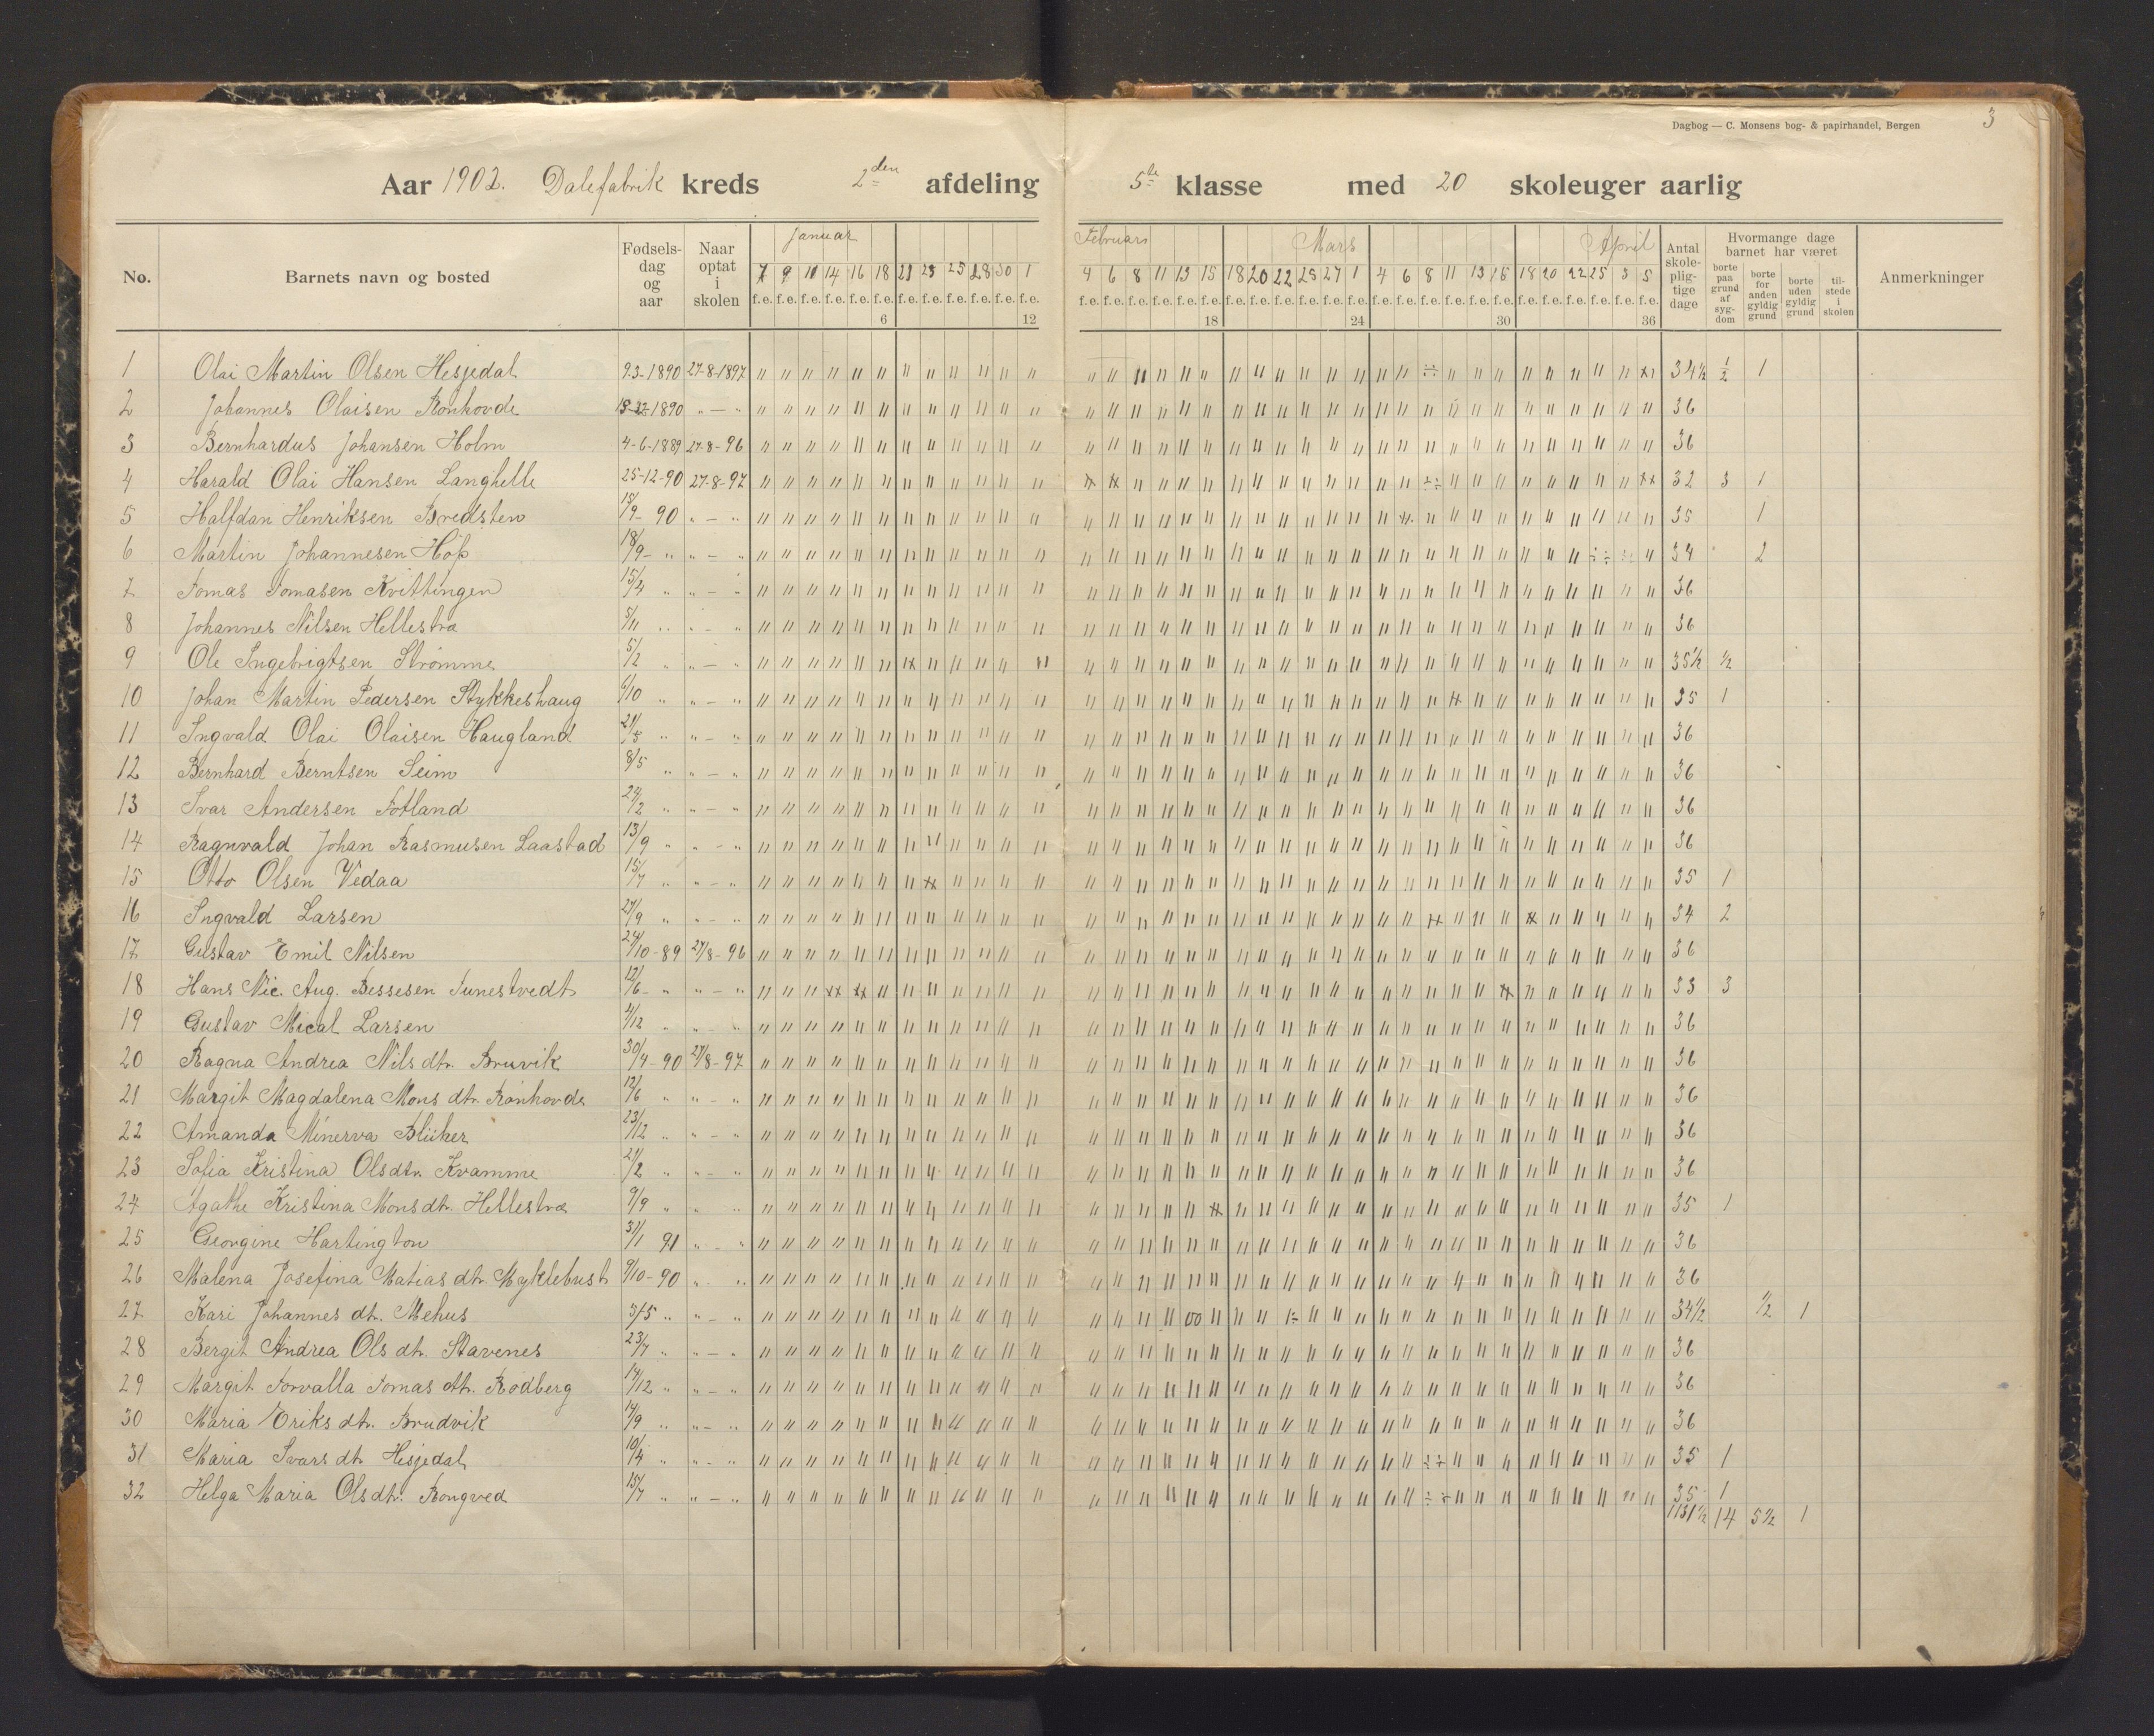 Dagbog — C. Monsens bog- & papirhandel, Bergen
3
Aar 1902. Dalefabrik kreds 2den afdeling 5te klasse med 20 skoleuger aarlig
No. Barnets navn og bosted Fødselsdag og aar Naar optat i skolen Januar Februari Mars April Antal skolepligtige dage Hvormange dage barnet har været Anmerkninger
borte paa grund af sygdom borte for anden gyldig grund borte uden gyldig grund tilstede i skolen
7 9 11 14 16 18 21 23 25 28 30 1 4 6 8 11 13 15 18 20 22 25 27 1 4 6 8 11 13 15 18 20 22 25 3 5
f.e. f.e. f.e. f.e. f.e. f.e. f.e. f.e. f.e. f.e. f.e. f.e. f.e. f.e. f.e. f.e. f.e. f.e. f.e. f.e. f.e. f.e. f.e. f.e. f.e. f.e. f.e. f.e. f.e. f.e. f.e. f.e. f.e. f.e. f.e. f.e.
6 12 18 24 30 36
1 Olai Martin Olsen Hesjedal 9-3-1890 27-8-1897 34½ ½ 1
2 Johannes Olaisen Rönhovde 1890 " — " 36
3 Bernhardus Johansen Holm 4-6-1889 27-8-96 36
4 Harald Olai Hansen Langhelle 25-12-90 27-8-97 32 3 1
5 Halfdan Henriksen Bredsten 18/9-90 " — " 35 1
6 Martin Johannesen Hop 18/9- " " — " 34 2
7 Tomas Tomasen Kvittingen 15/4 " " — " 36
8 Johannes Nilsen Hellestræ 5/11 " " — " 36
9 Ole Ingebrigtsen Strömme 5/2 " " — " 35½ ½
10 Johan Martin Pedersen Stykkeshaug 6/10 " " — " 35 1
11 Ingvald Olai Olaisen Haugland 21/5 " " — " 36
12 Bernhard Berntsen Seim 8/5 " " — " 36
13 Ivar Andersen Fotland 24/2 " " — " 36
14 Ragnvald Johan Rasmusen Laastad 13/9 " " — " 36
15 Otto Olsen Vedaa 15/7 " " — " 35 1
16 Ingvald Larsen 27/9 " " — " 34 2
17 Gustav Emil Nilsen 24/10-89 27/8-96 36
18 Hans Nic. Aug. Bessesen Tunestvedt 12/6- " " — " 33 3
19 Gustav Mical Larsen 4/12 " " — " 36
20 Ragna Andrea Nilsdtr. Bruvik 30/4-90 27/8-97 36
21 Margit Magdalena Monsdtr. Rönhovde 12/6 " " — " 36
22 Amanda Minerva Blüker 23/12 " " — " 36
23 Sofia Kristina Olsdtr. Kvamme 21/2 " " — " 36
24 Agathe Kristina Monsdtr. Hellestræ 9/9 " " " 35 1
25 Georgine Hartington 31/1 91 " — " 36
26 Malena Josefina Matiasdtr. Myklebust 9/10-90 " " 36
27 Kari Johannesdtr. Mehus 3/5 " " — " 34½ ½ 1
28 Bergit Andrea Olsdtr. Stavenes 23/7 " " — " 36
29 Margit Torvalla Tomasdtr. Rodberg 14/12 " " — " 36
30 Maria Eriksdtr. Brudvik 14/9 " " — " 36
31 Maria Ivarsdtr. Hesjedal 10/4 " " — " 35 1
32 Helga Maria Olsdtr. Rongved 15/7 " " — " 35 1
1131½ 14 5½ 1